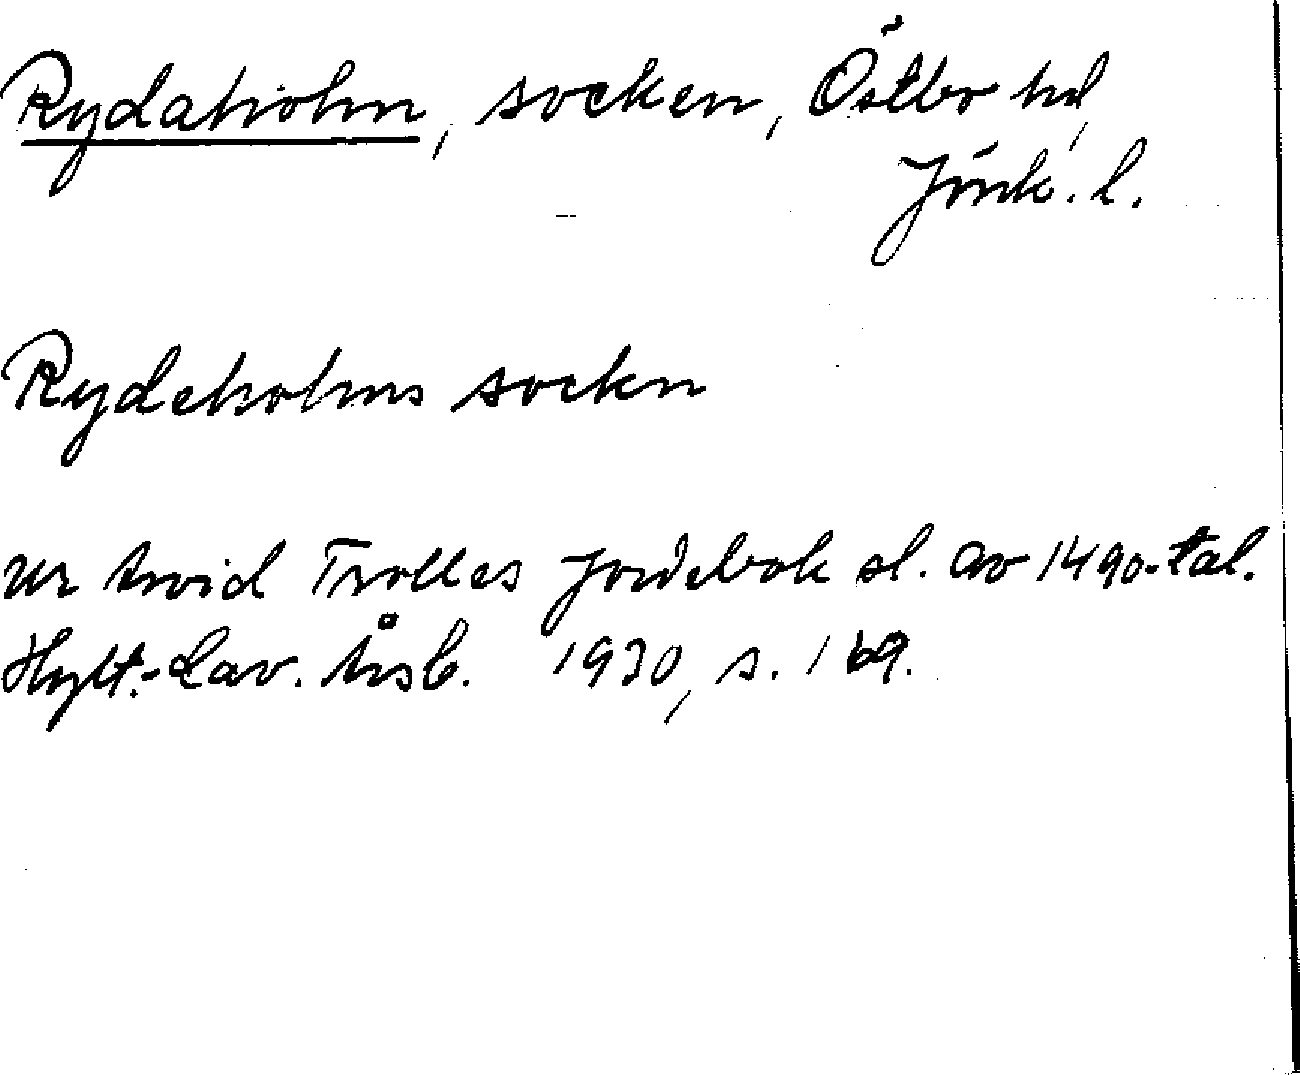 Rydaholm, socken, Östbo hd,
Jönk. l.
Rydeholms sockn
Ur Arvid Trolles Jordebok sl. av 1490-tal.
Hylt.-Cav. Årsb. 1930, s. 169.